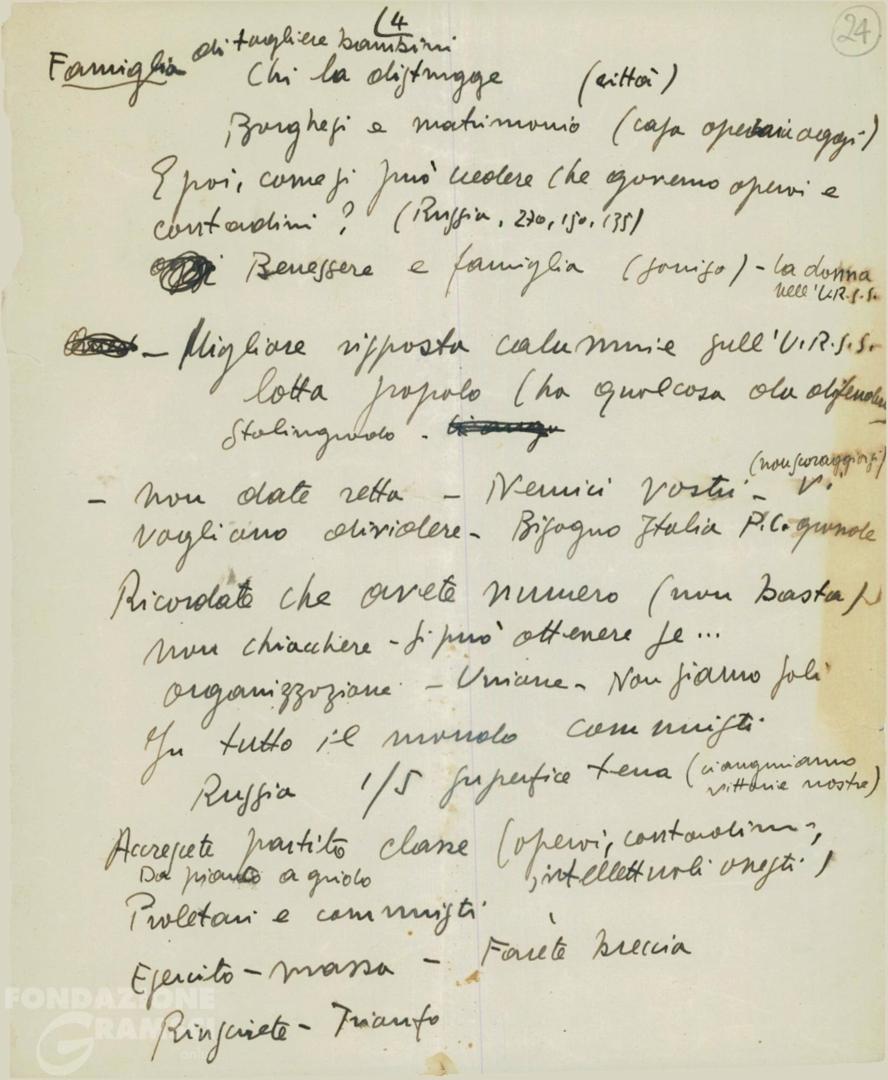 (4
24
Famiglia di togliere bambini
Chi la distrugge (città)
Borghesi e matrimonio (casa operaia oggi)
E poi, come si può credere che governo operai e
contadini? (Russia, 270, 150, 135)
Benessere e famiglia - la donna
nell'U.R.S.S.
- Migliore risposta calunnie sull'U.R.S.S.
lotta popolo (ha qualcosa da difendere
Stalingrado.
(non scoraggiarsi)
- non date retta - Nemici vostri - Vi
vogliono dividere - Bisogno Italia P.C. grande
Ricordate che avete numero (non basta)
non chiacchiere - si può ottenere se...
organizzazione - Unione - Non siamo soli
In tutto il mondo comunisti
Russia 1/5 superfice terra (ci auguriamo
vittorie nostre)
Accrescete partito classe (operai, contadini,
intellettuali onesti)
Da pianto a grido
Proletari e comunisti
Esercito - massa - Farete breccia
Riuscirete - Trionfo
FONDAZIONE
GRAMSCI
onlus